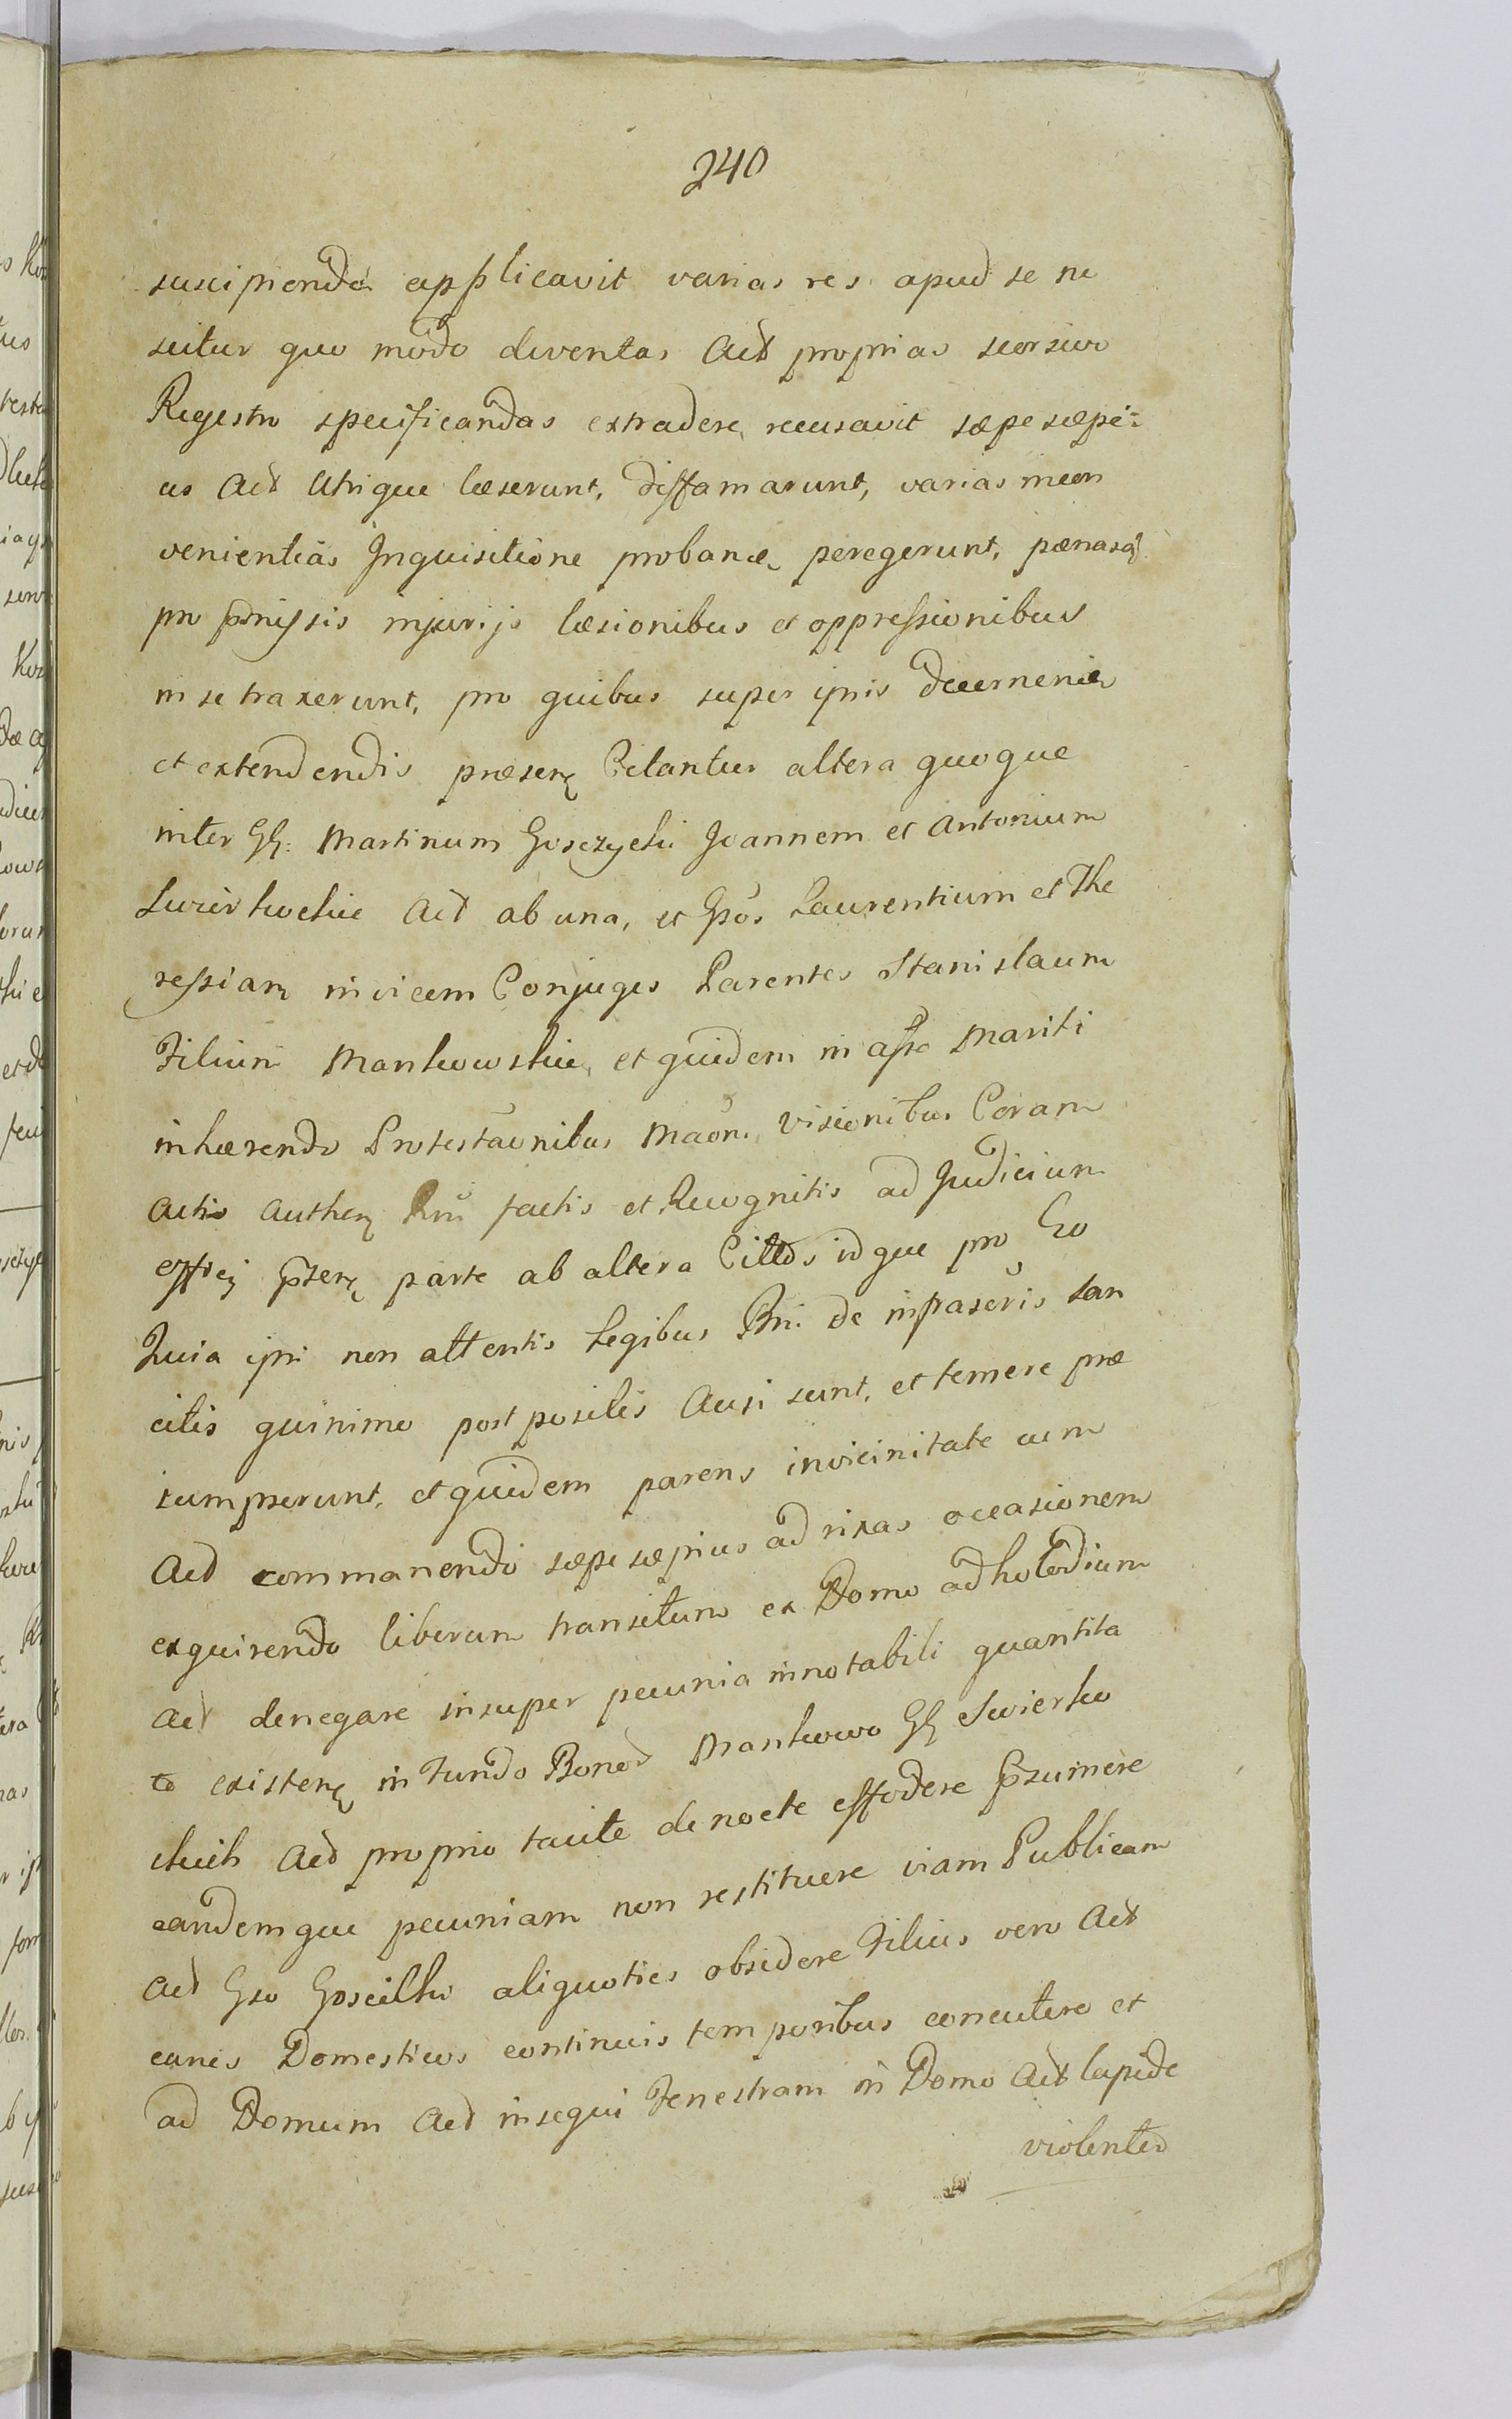 240
suscipiendo applicavit varias res apud se ne
scitur quo modo deventas Act proprias seorsivo
Regestro specificandas extradere recusavit sæpe sæpi=
us Act Utrique læserunt, diffamarunt, varias incon
venientias Inquisitione probanæ, peregerunt, pænasq
pro pmissis injurijs læsionibus et oppressionibus
in se traxerunt, pro quibus super ipsis decernenis
et extendendis præsen Citantur altera quoque
inter GG: Martinum Goszycki Joannem et Antonium
Swierkockie Act ab una, et Gsos Laurentium et The
ressiam invicem Conjuges Parentes Stanislaum
Filium Mankowskie, et quidem in assa Mariti
inhærendo Protestaonibus Maon, visionibus Coram
Actis Authen Rni factis et Recognitis ad Judicium
offici psen parte ab altera Cittos idque pro Eo
Quia ipsi non attentis Legibus Rni de infrascris san
citis quinimo post positis Ausi sunt, et temere præ
sumpserunt, et quidem parens in vicinitate cum
Act commanendo sæpe sæpius ad rixas occasionem
exquirendo liberum transitum ex Domo ad holodium
Act denegare insuper pecunia in notabili quantita
te existen in Fundo Bonor Mankowo GG Swierko
skich Act proprio tacite de nocte effodere psumere
eandemque pecuniam non restituere viam Publicam
Act Gso Goscilko aliquoties obsidere Filius vero Act
canes Domesticos continuis temporibus concutere et
ad Domum Act insequi Fenestram in Domo Act lapide
violenter